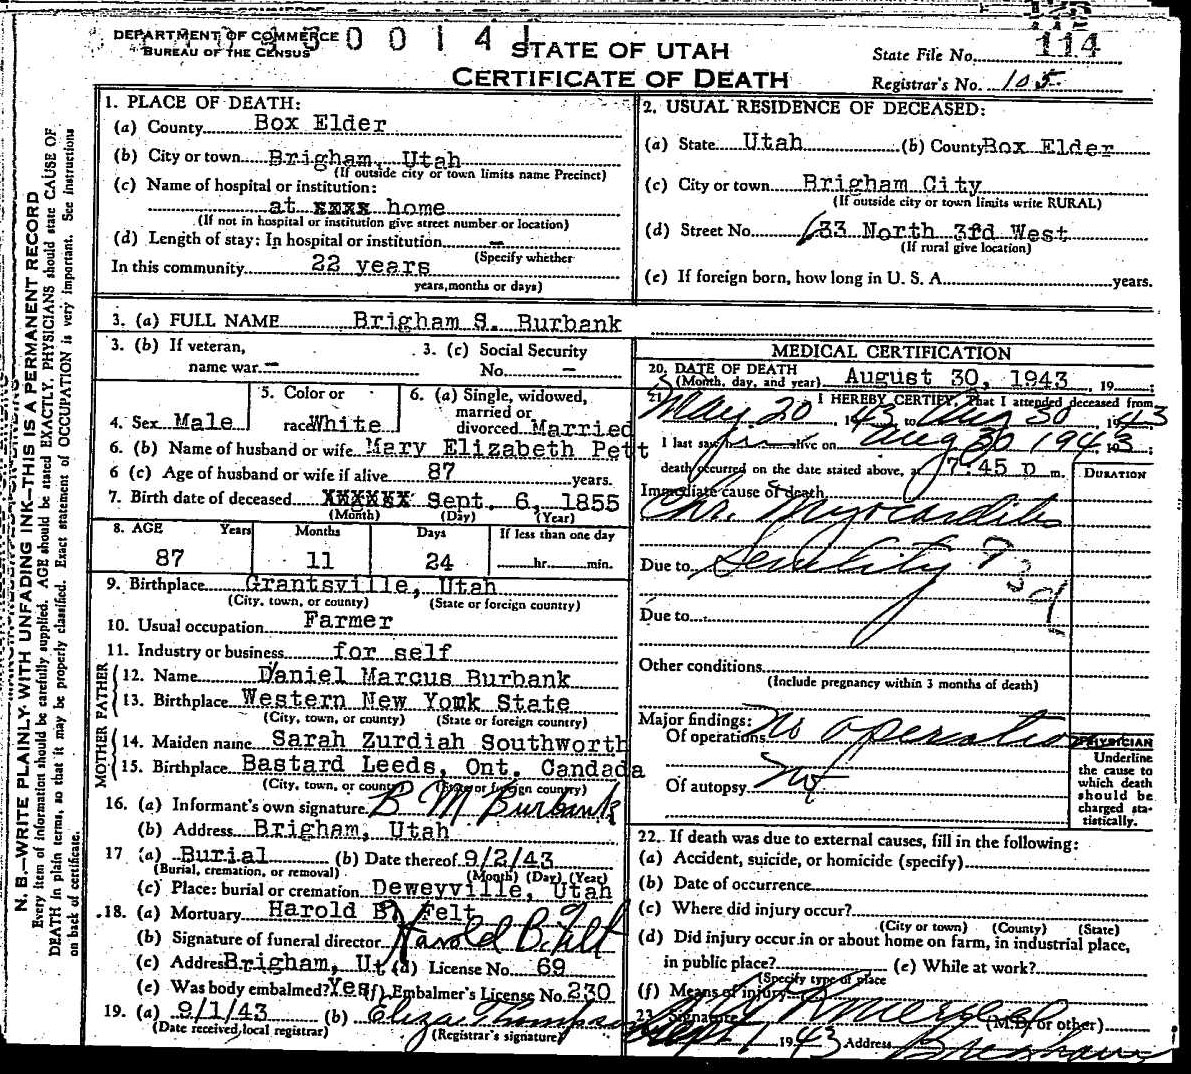 DEPARTMENT OF COMMERCE
BUREAU OF THE CENSUS
STATE OF UTAH
CERTIFICATE OF DEATH
State File No. 114
Registrar's No. 105
N. B.—WRITE PLAINLY WITH UNFADING INK—THIS IS A PERMANENT RECORD
Every item of information should be carefully supplied. AGE should be stated EXACTLY. PHYSICIANS should state CAUSE OF
DEATH in plain terms, so that it may be properly classified. Exact statement of OCCUPATION is very important. See instructions
on back of certificate.
1. PLACE OF DEATH:
(a) County Box Elder
(b) City or town Brigham, Utah
(If outside city or town limits name Precinct)
(c) Name of hospital or institution:
at xxxx home
(If not in hospital or institution give street number or location)
(d) Length of stay: In hospital or institution —
(Specify whether
In this community 22 years
years, months or days)
2. USUAL RESIDENCE OF DECEASED:
(a) State Utah (b) County Box Elder
(c) City or town Brigham City
(If outside city or town limits write RURAL)
(d) Street No. 633 North 3rd West
(If rural give location)
(e) If foreign born, how long in U. S. A. years.
3. (a) FULL NAME Brigham S. Burbank
3. (b) If veteran,
name war —
3. (c) Social Security
No. —
4. Sex Male
5. Color or
race White
6. (a) Single, widowed,
married or
divorced Married
6. (b) Name of husband or wife Mary Elizabeth Pett
6 (c) Age of husband or wife if alive 87 years.
7. Birth date of deceased xxxxxx Sept. 6, 1855
(Month) (Day) (Year)
8. AGE Years Months Days If less than one day
87 11 24 hr. min.
9. Birthplace Grantsville, Utah
(City, town, or county) (State or foreign country)
10. Usual occupation Farmer
11. Industry or business for self
FATHER
12. Name Daniel Marcus Burbank
13. Birthplace Western New York State
(City, town, or county) (State or foreign country)
MOTHER
14. Maiden name Sarah Zurdiah Southworth
15. Birthplace Bastard Leeds, Ont. Candada
(City, town, or county) (State or foreign country)
16. (a) Informant's own signature B M Burbank
(b) Address Brigham, Utah
17 (a) Burial (b) Date thereof 9/2/43
(Burial, cremation, or removal) (Month) (Day) (Year)
(c) Place: burial or cremation Deweyville, Utah
18. (a) Mortuary Harold B. Felt
(b) Signature of funeral director Harold B. Felt
(c) Address Brigham, Ut (d) License No. 69
(e) Was body embalmed? Yes (f) Embalmer's License No. 230
19. (a) 9/1/43 (b) Eliza Thompson
(Date received local registrar) (Registrar's signature)
MEDICAL CERTIFICATION
20. DATE OF DEATH
(Month, day, and year) August 30, 1943, 19 ;
21. I HEREBY CERTIFY, That I attended deceased from
May 20 1943 to Aug 30 1943
I last saw him alive on Aug 30 1943, 19 ;
death occurred on the date stated above, at 7:45 p m.
DURATION
Immediate cause of death
Chr. Myocarditis
Due to Senility
Due to
Other conditions
(Include pregnancy within 3 months of death)
Major findings:
Of operations no operation
Of autopsy not
PHYSICIAN
Underline
the cause to
which death
should be
charged sta-
tistically.
22. If death was due to external causes, fill in the following:
(a) Accident, suicide, or homicide (specify)
(b) Date of occurrence
(c) Where did injury occur?
(City or town) (County) (State)
(d) Did injury occur in or about home on farm, in industrial place,
in public place? (e) While at work?
(Specify type of place
(f) Means of injury
23 Signature (M.D. or other)
Sept 1 1943 Address Brigham